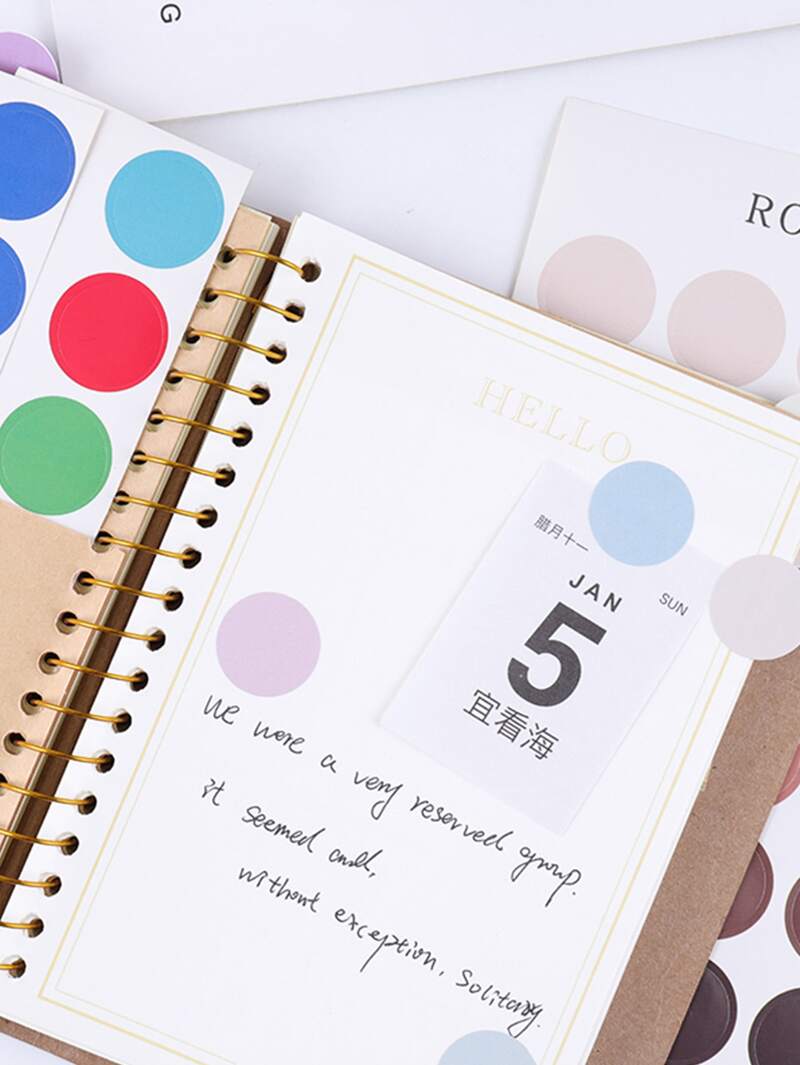 G
RO
HELLO
腊月十一
JAN
SUN
5
宜看海
We were a very reserved group.
it seemed and,
without exception, solitary.